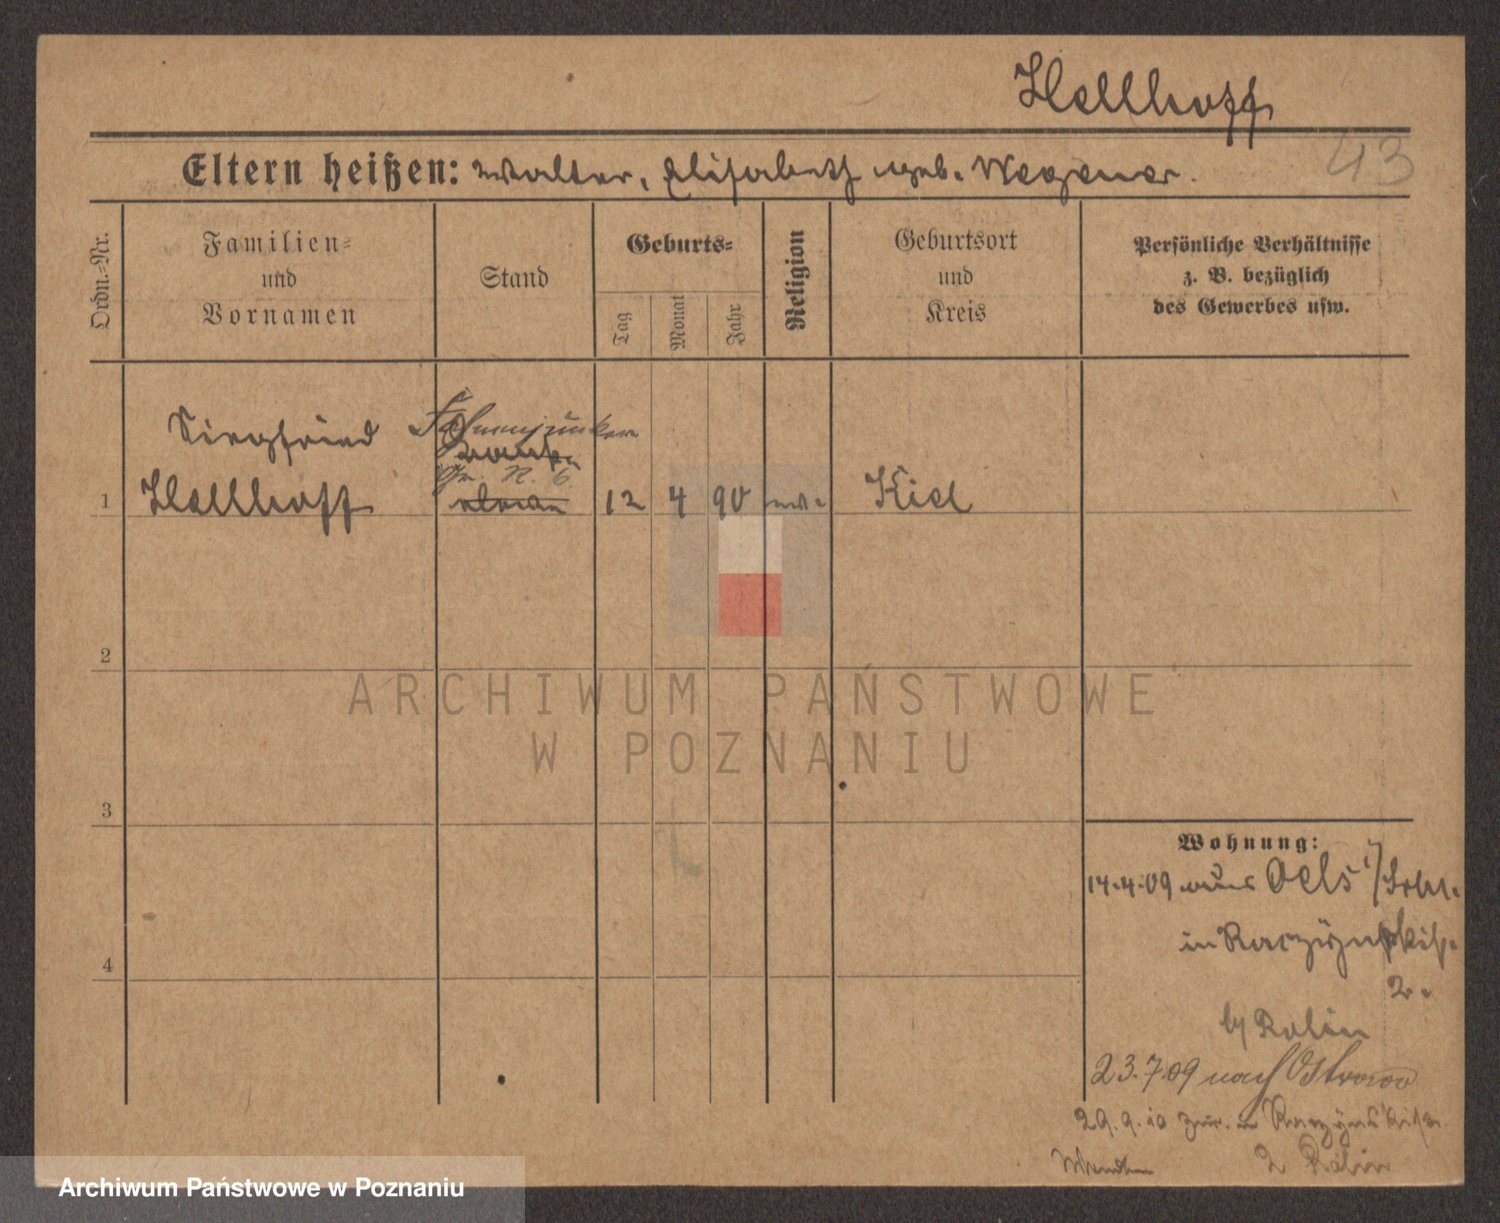 Hellhoff
43
Eltern heißen: Walter, Elisabeth geb. Wegener.
Ordn.=Nr.
Familien=
und
Vornamen
Stand
Geburts=
Tag
Monat
Jahr
Religion
Geburtsort
und
Kreis
Persönliche Verhältnisse
z. B. bezüglich
des Gewerbes usw.
Siegfried
Fahnenjunker
Gr. R. 6
1
Hellhoff
12 4 90 ev.
Kiel
2
ARCHIWUM PAŃSTWOWE
W POZNANIU
3
Wohnung:
14.4.09 aus Oels i/Schl.
4
in Raczynskistr.
2.
b/ Rolin
23.7.09 nach Ostrowo
29.9.10 zur. in Raczynskistr.
Wenden
2 Rolin
Archiwum Państwowe w Poznaniu